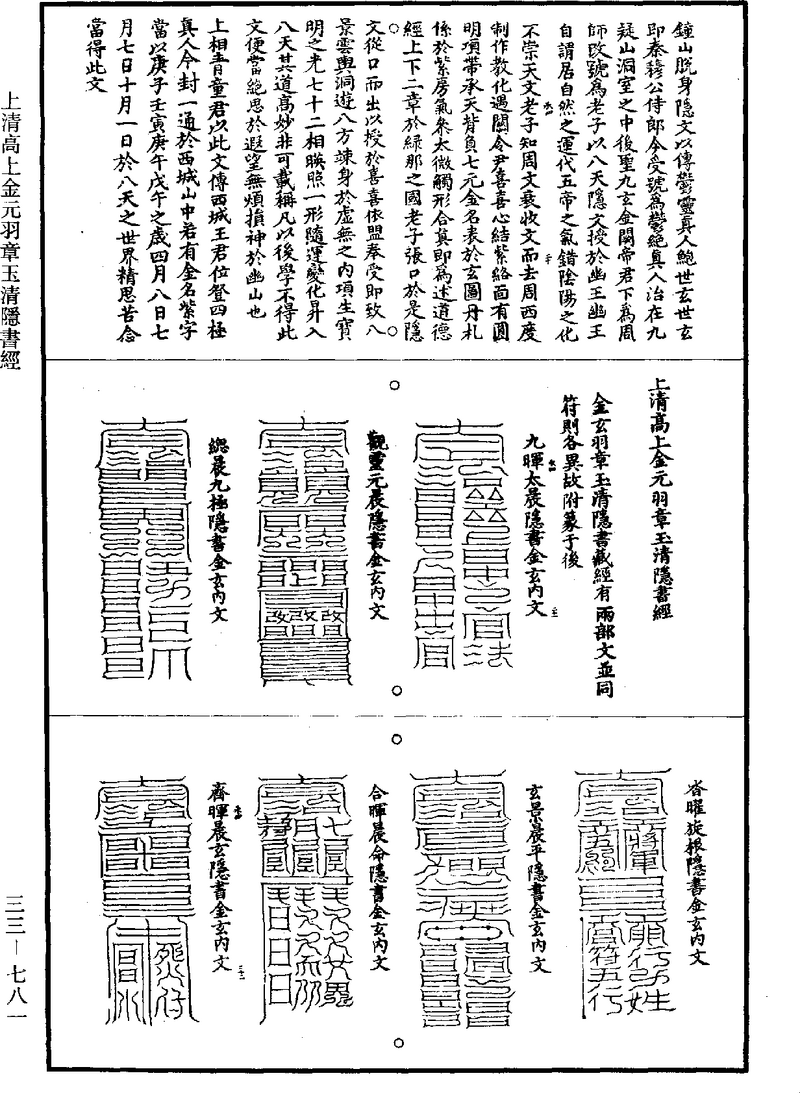 鐘山脫身隱文以傳鬱靈真人鮑世玄世玄
即秦穆公侍郎今受號為鬱絕真人治在九
疑山洞室之中後聖九玄金闕帝君下為周
師改號為老子以八天隱文授於幽王幽王
自謂居自然之運代五帝之氣錯陰陽之化
不崇天文老子知周文衰收文而去周西度
制作教化遇關令尹喜喜心結紫絡面有圓
明項帶承天背負七元金名表於玄圖丹札
係於紫房氣參太微觸形合真即為述道德
經上下二章於綠那之國老子張口於是隱
文從口而出以授於喜喜依盟奉受即致八
景雲輿洞遊八方竦身於虛無之內項生寶
明之光七十二相映照一形隨運變化昇入
八天其道高妙非可載稱凡以後學不得此
文便當絕思於遐望無煩損神於幽山也
上相青童君以此文傳西城王君位登四極
真人今封一通於西城山中若有金名紫字
當以庚子壬寅庚午戊午之歲四月八日七
月七日十月一日於八天之世界精思苦念
當得此文
上清高上金元羽章玉清隱書經
金玄羽章玉清隱書藏經有兩部文並同
符則各異故附篆于後
九暉太晨隱書金玄內文
觀靈元晨隱書金玄內文
總晨九極隱書金玄內文
沓曜旋根隱書金玄內文
玄景晨平隱書金玄內文
合暉晨命隱書金玄內文
齊暉晨玄隱書金玄內文
上清高上金元羽章玉清隱書經
三三—七八一